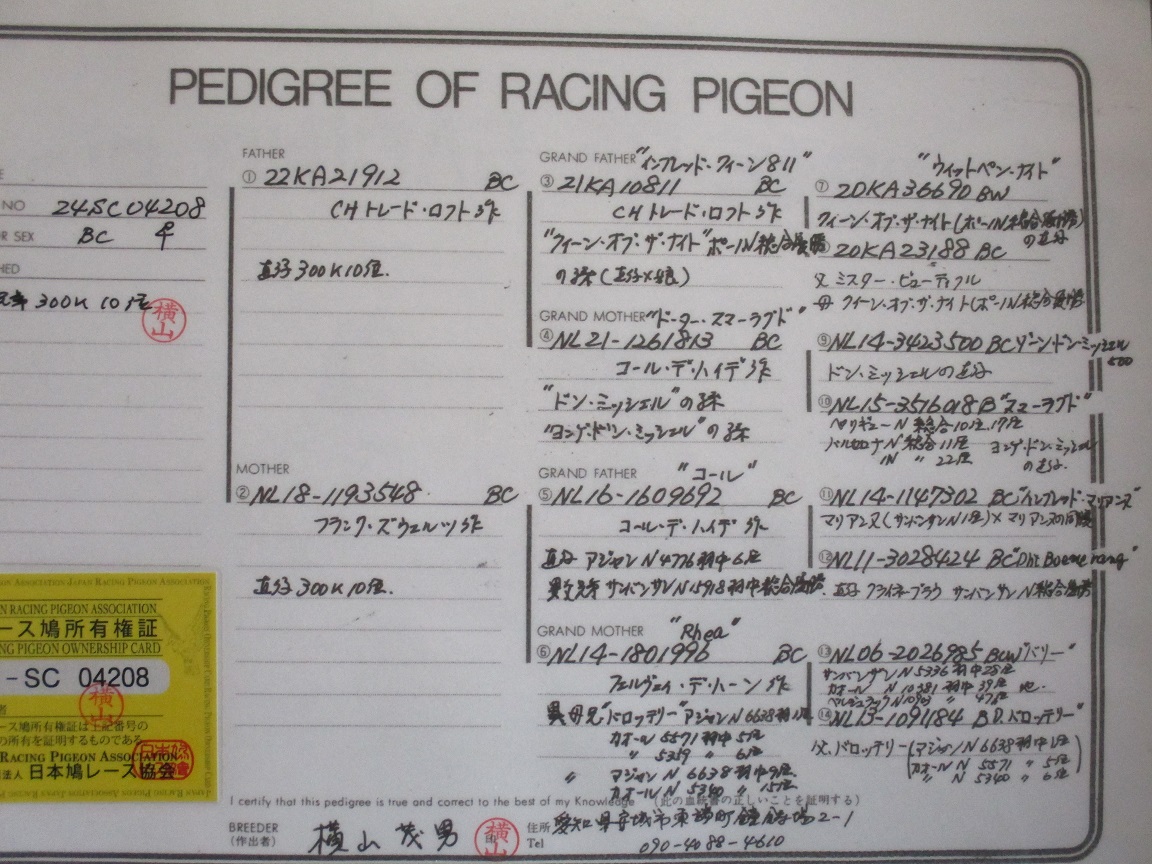 PEDIGREE OF RACING PIGEON
NO 24SC04208
R SEX BC ♀
HED
300K 10位
横山
FATHER
① 22KA21912 BC
CHトレード・ロフト作
直仔300K10位.
MOTHER
② NL18-1193548 BC
フランク・ズウェルツ作
直仔300K10位.
GRAND FATHER "インブレッド・クィーン811"
③ 21KA10811 BC
CHトレード・ロフト作
"クィーン・オブ・ザ・ナイト" ポーN総合優勝
の孫(直仔×娘)
GRAND MOTHER "ドーター・スマーラグド"
④ NL21-1261813 BC
コール・デ・ハイデ作
"ドン・ミッシェル"の孫
"ヨンゲ・ドン・ミッシェル"の孫
GRAND FATHER "コール"
⑤ NL16-1609692 BC
コール・デ・ハイデ作
直仔 アジャンN4776羽中6位
異父兄弟 サンバンサンN15918羽中総合優勝.
GRAND MOTHER "Rhea"
⑥ NL14-1801996 BC
フェルヴェイ・デ・ハーン作
異母兄"ドロッテリー"アジャンN6638羽中1位
カオール 5571羽中5位
〃 5359 〃 6位
〃 アジャンN 6638羽中9位.
カオールN 5340 〃 15位
"ウィットペン・ナイト"
⑦ 20KA36690 BW
クィーン・オブ・ザ・ナイト(ポーIN総合優勝)の直仔
20KA23188 BC
父 ミスター・ビューティフル
母 クィーン・オブ・ザ・ナイト(ポーIN総合優勝
⑨ NL14-3423500 BC ゾーン・ドン・ミッシェル500
ドン・ミッシェルの直仔
⑩ NL15-3516018 B "スマーラグド"
ペリギューN総合10位.17位
バルセロナN総合11位
IN 〃 22位
ヨンゲ・ドン・ミッシェルの直仔.
⑪ NL14-1147302 BC "インブレッド・マリアンヌ"
マリアンヌ(サンバンサンN1位)×マリアンヌの同腹
⑫ NL11-3028424 BC "Dhr Boemerang"
直仔 フライネブラウ サンバンサンN総合優勝
⑬ NL06-2026985 BCW "バリー"
サンバンサンN5336羽中28位
カオール N 10381羽中39位 他.
ベルジュラックN10903 〃 47位
⑭ NL13-1091184 B D.ドロッテリー"
父.ドロッテリー(アジャンN6638羽中1位
カオールN 5571 〃 5位
〃 N 5340 〃 6位)
ION ASSOCIATION JAPAN RACING PIGEON ASSOCIATION
N RACING PIGEON ASSOCIATION
ース鳩所有権証
NG PIGEON OWNERSHIP CARD
-SC 04208
者
横山
ース鳩所有権証は上記番号の
の所有を証明するものである
RACING PIGEON ASSOCIATION
法人 日本鳩レース協会
I certify that this pedigree is true and correct to the best of my Knowledge (此の血統書の正しいことを証明する)
BREEDER
(作出者)
横山茂男
横山
住所 愛知県安城市東端町鐘鋳場2-1
Tel 090-4088-4610